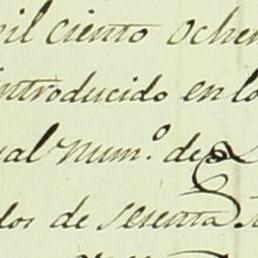 mil ciento Ochen
introducido en lo
ual Num.º de
dos de sesenta